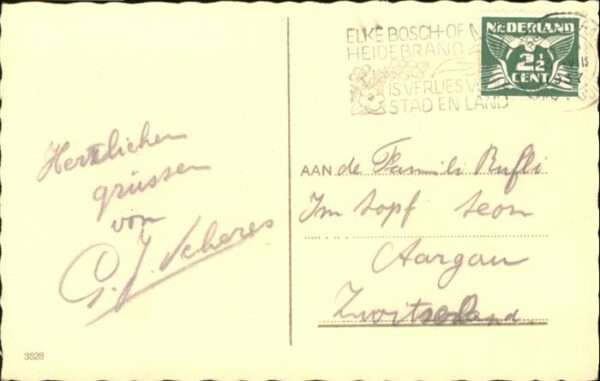 ELKE BOSCH- OF
HEIDEBRAND
IS VERLIES V
STAD EN LAND
NEDERLAND
2½
CENT
Hertzlichen
grüssen
von
G. J. Scheres
AAN de Famili Rufli
Im Topf Seon
Aargau
Zwitserland.
3528